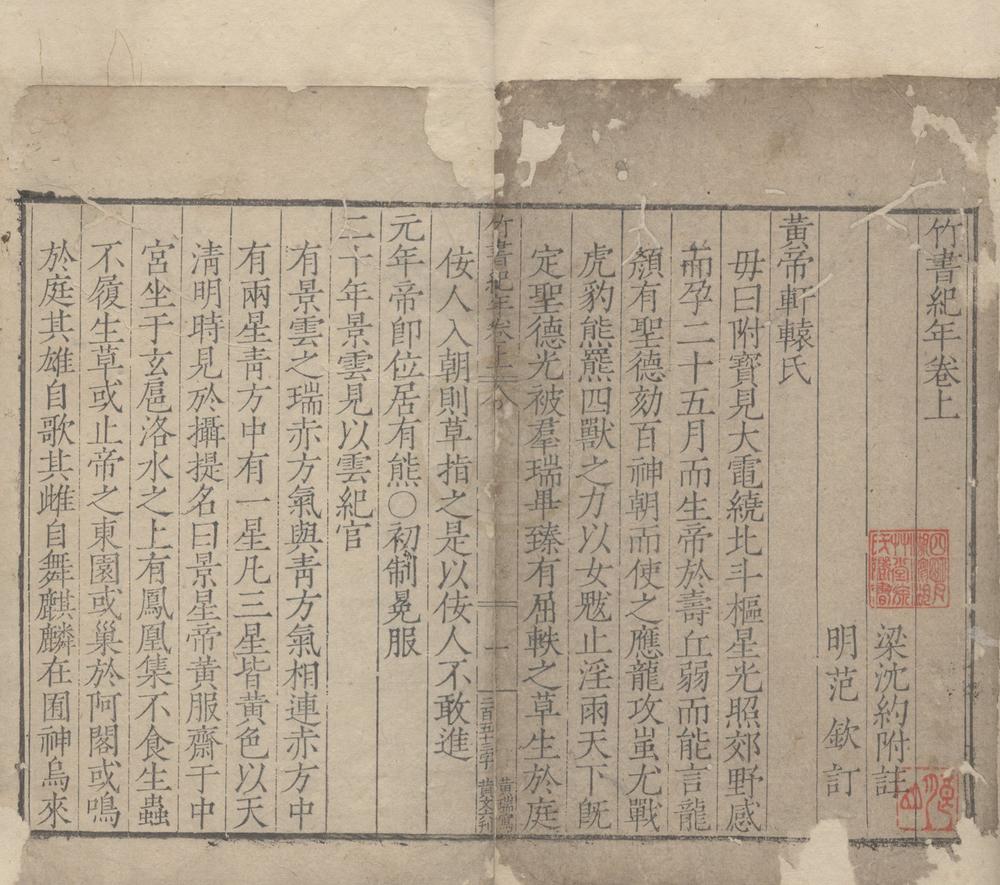 竹書紀年卷上
梁沈約附註
明范欽訂
黃帝軒轅氏
母曰附寶見大電繞北斗樞星光照郊野感
而孕二十五月而生帝於壽丘弱而能言龍
顏有聖德劾百神朝而使之應龍攻蚩尤戰
虎豹熊羆四獸之力以女魃止淫雨天下旣
定聖德光被羣瑞畢臻有屈軼之草生於庭
竹書紀年卷上
一
三百五十三字
黃瑞寫
佞人入朝則草指之是以佞人不敢進
元年帝卽位居有熊○初制冕服
二十年景雲見以雲紀官
有景雲之瑞赤方氣與靑方氣相連赤方中
有兩星靑方中有一星凡三星皆黃色以天
淸明時見於攝提名曰景星帝黃服齋于中
宮坐于玄扈洛水之上有鳳凰集不食生蟲
不履生草或止帝之東園或巢於阿閣或鳴
於庭其雄自歌其雌自舞麒麟在囿神鳥來